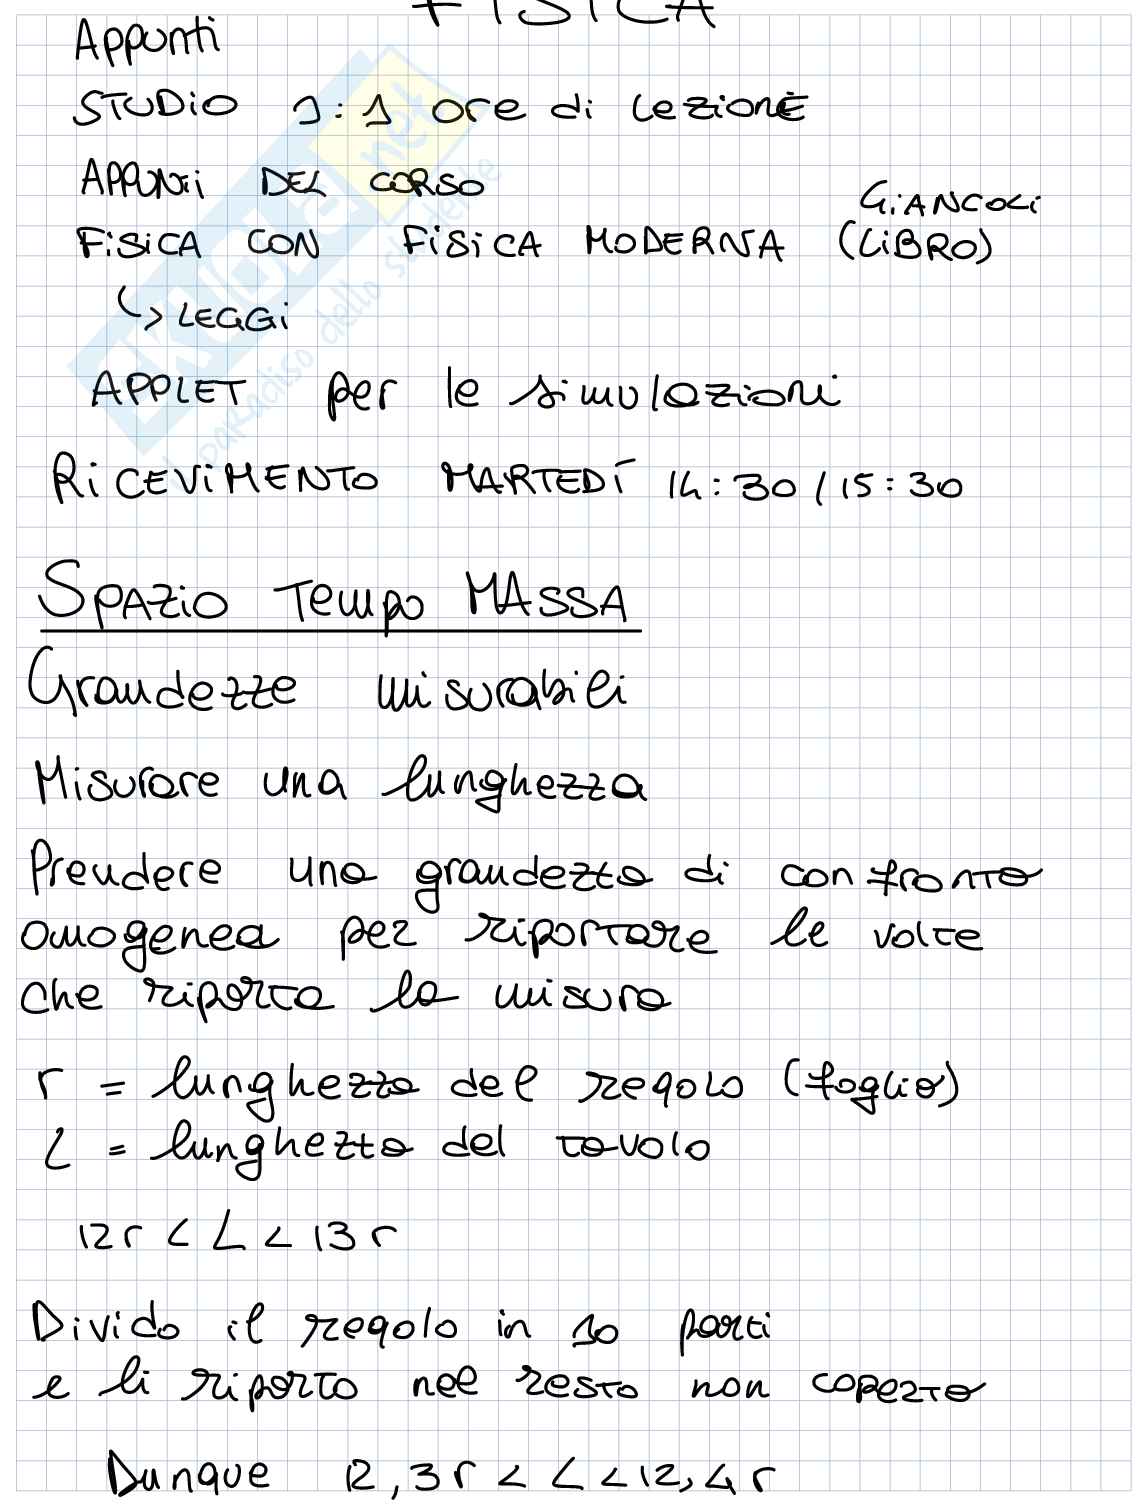 FISICA
Appunti
STUDIO 1:1 ore di lezione
APPUNTI DEL CORSO
GIANCOLI
FISICA CON FISICA MODERNA (LIBRO)
↳ LEGGI
APPLET per le simulazioni
RICEVIMENTO MARTEDÌ 14:30/15:30
SPAZIO Tempo MASSA
Grandezze misurabili
Misurare una lunghezza
Prendere una grandezza di confronto
omogenea per riportare le volte
che riporta la misura
r = lunghezza del regolo (foglio)
L = lunghezza del tavolo
12r < L < 13r
Divido il regolo in 10 parti
e li riporto nel resto non coperto
Dunque 12,3r < L < 12,4r
skuola.net
il paradiso dello studente